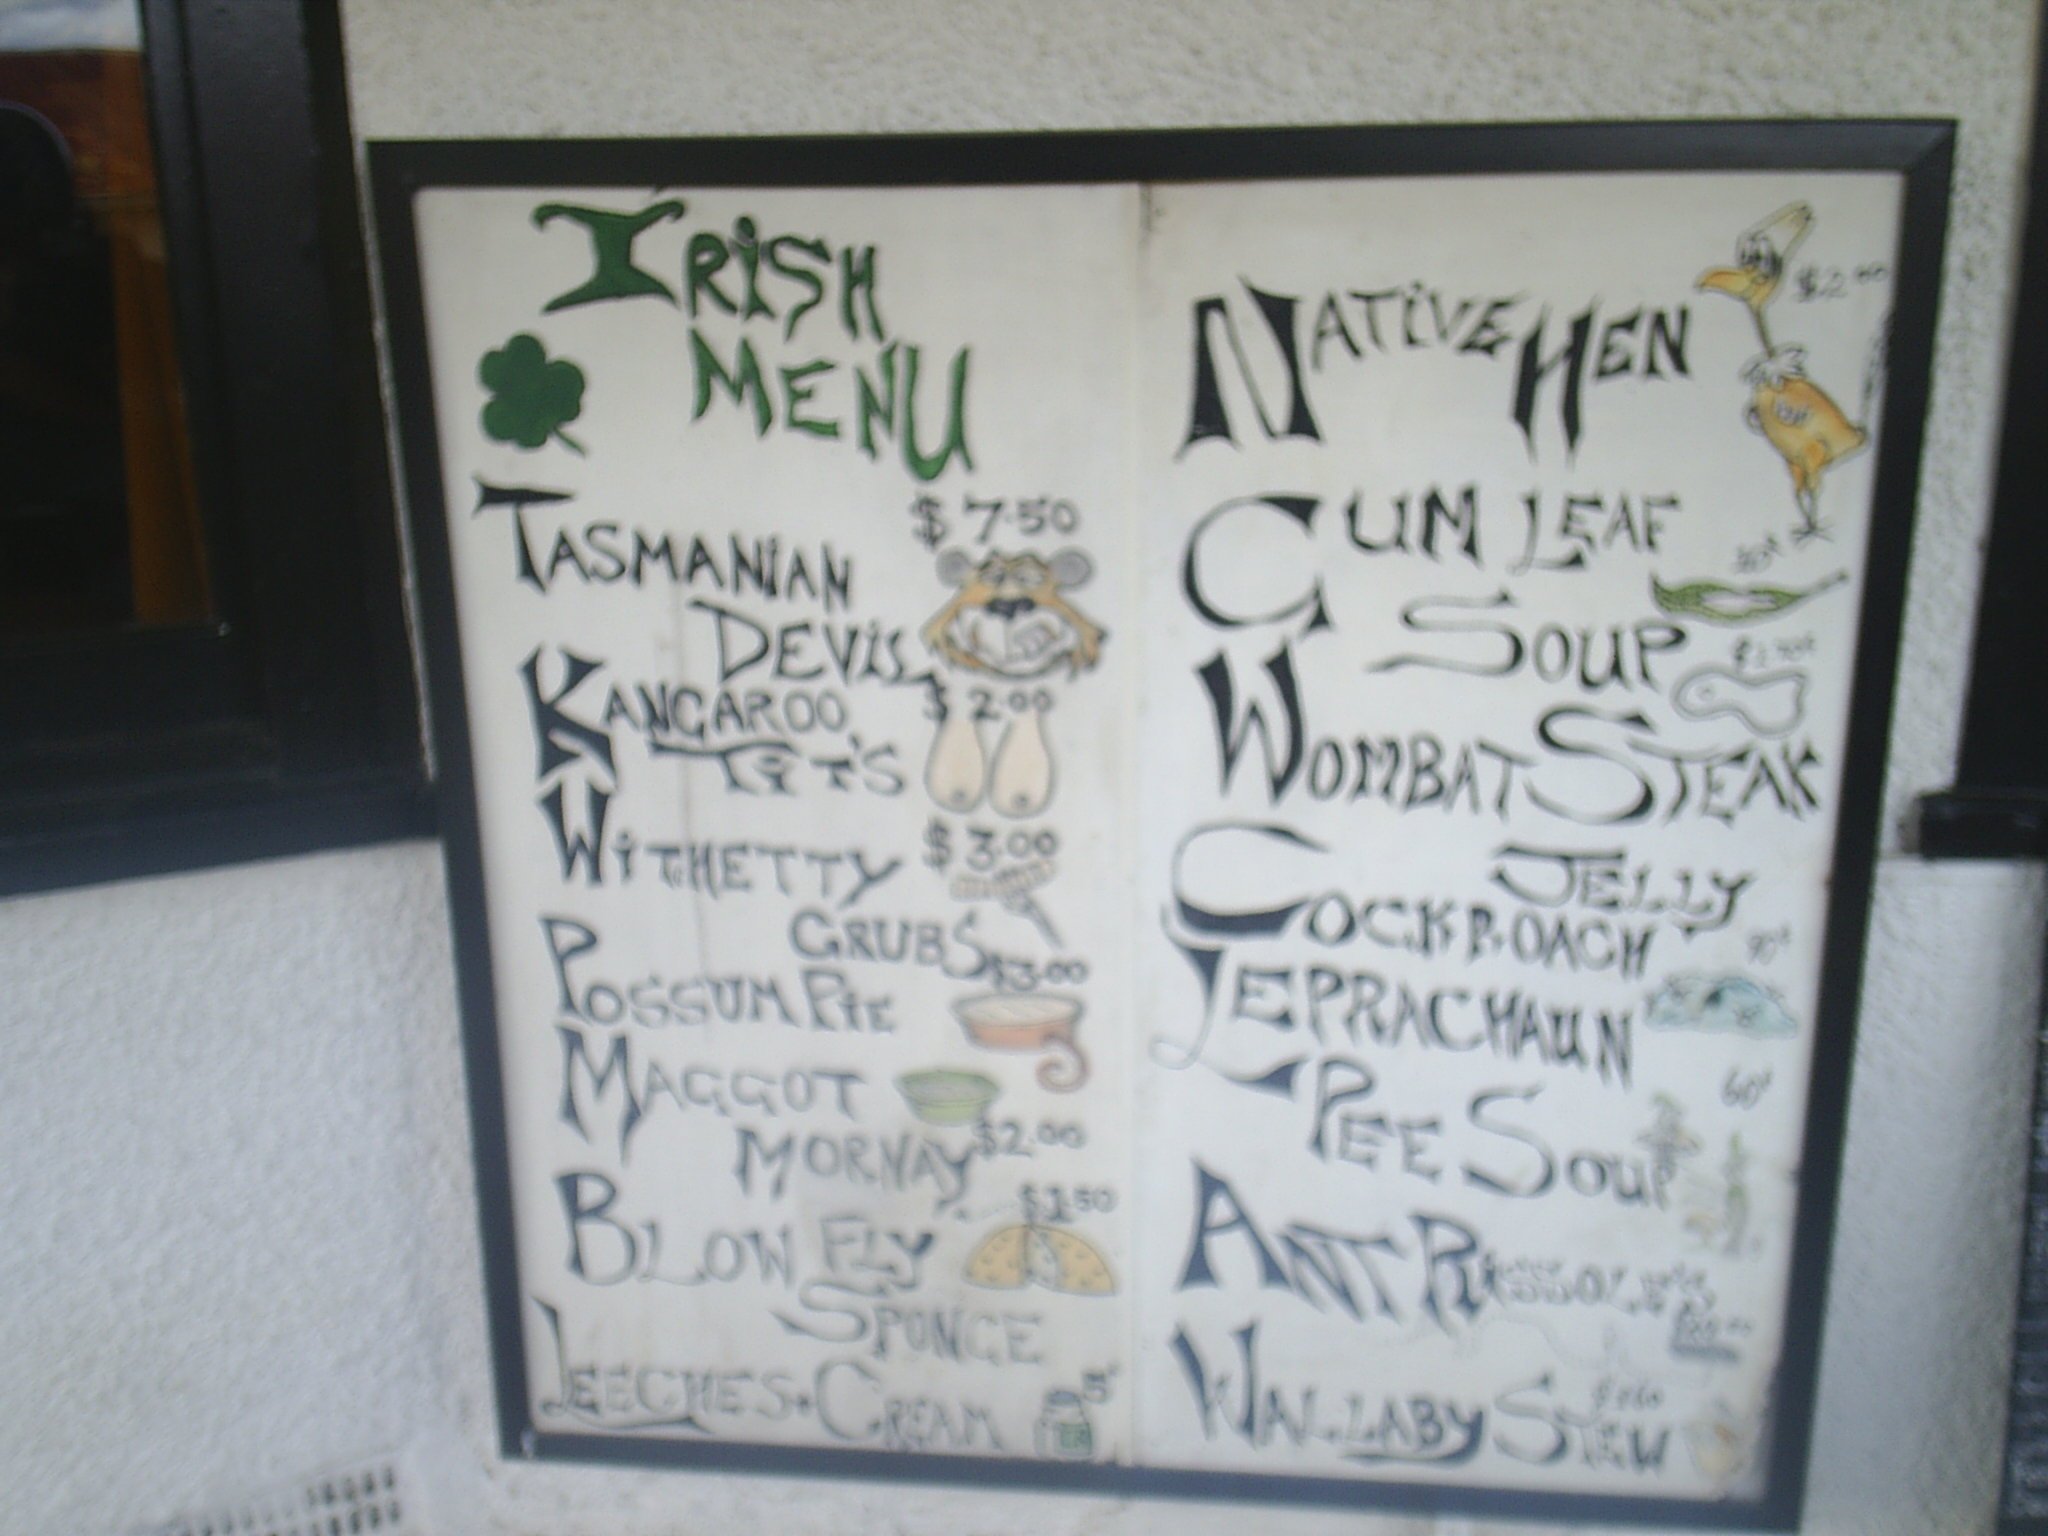 IRISH
MENU
$7.50
TASMANIAN
DEVIL
KANGAROO $2.00
TIT'S
WITHETTY $3.00
GRUBS
$3.00
POSSUM PIE
MAGGOT
MORNAY $2.00
$1.50
BLOW FLY
SPONGE
LEECHES + CREAM 5¢
$2.00
NATIVE HEN
GUM LEAF
SOUP
WOMBAT STEAK
JELLY
COCKROACH
LEPRACHAUN
60¢
PEE SOUP
ANT RISSOLE'S
WALLABY STEW